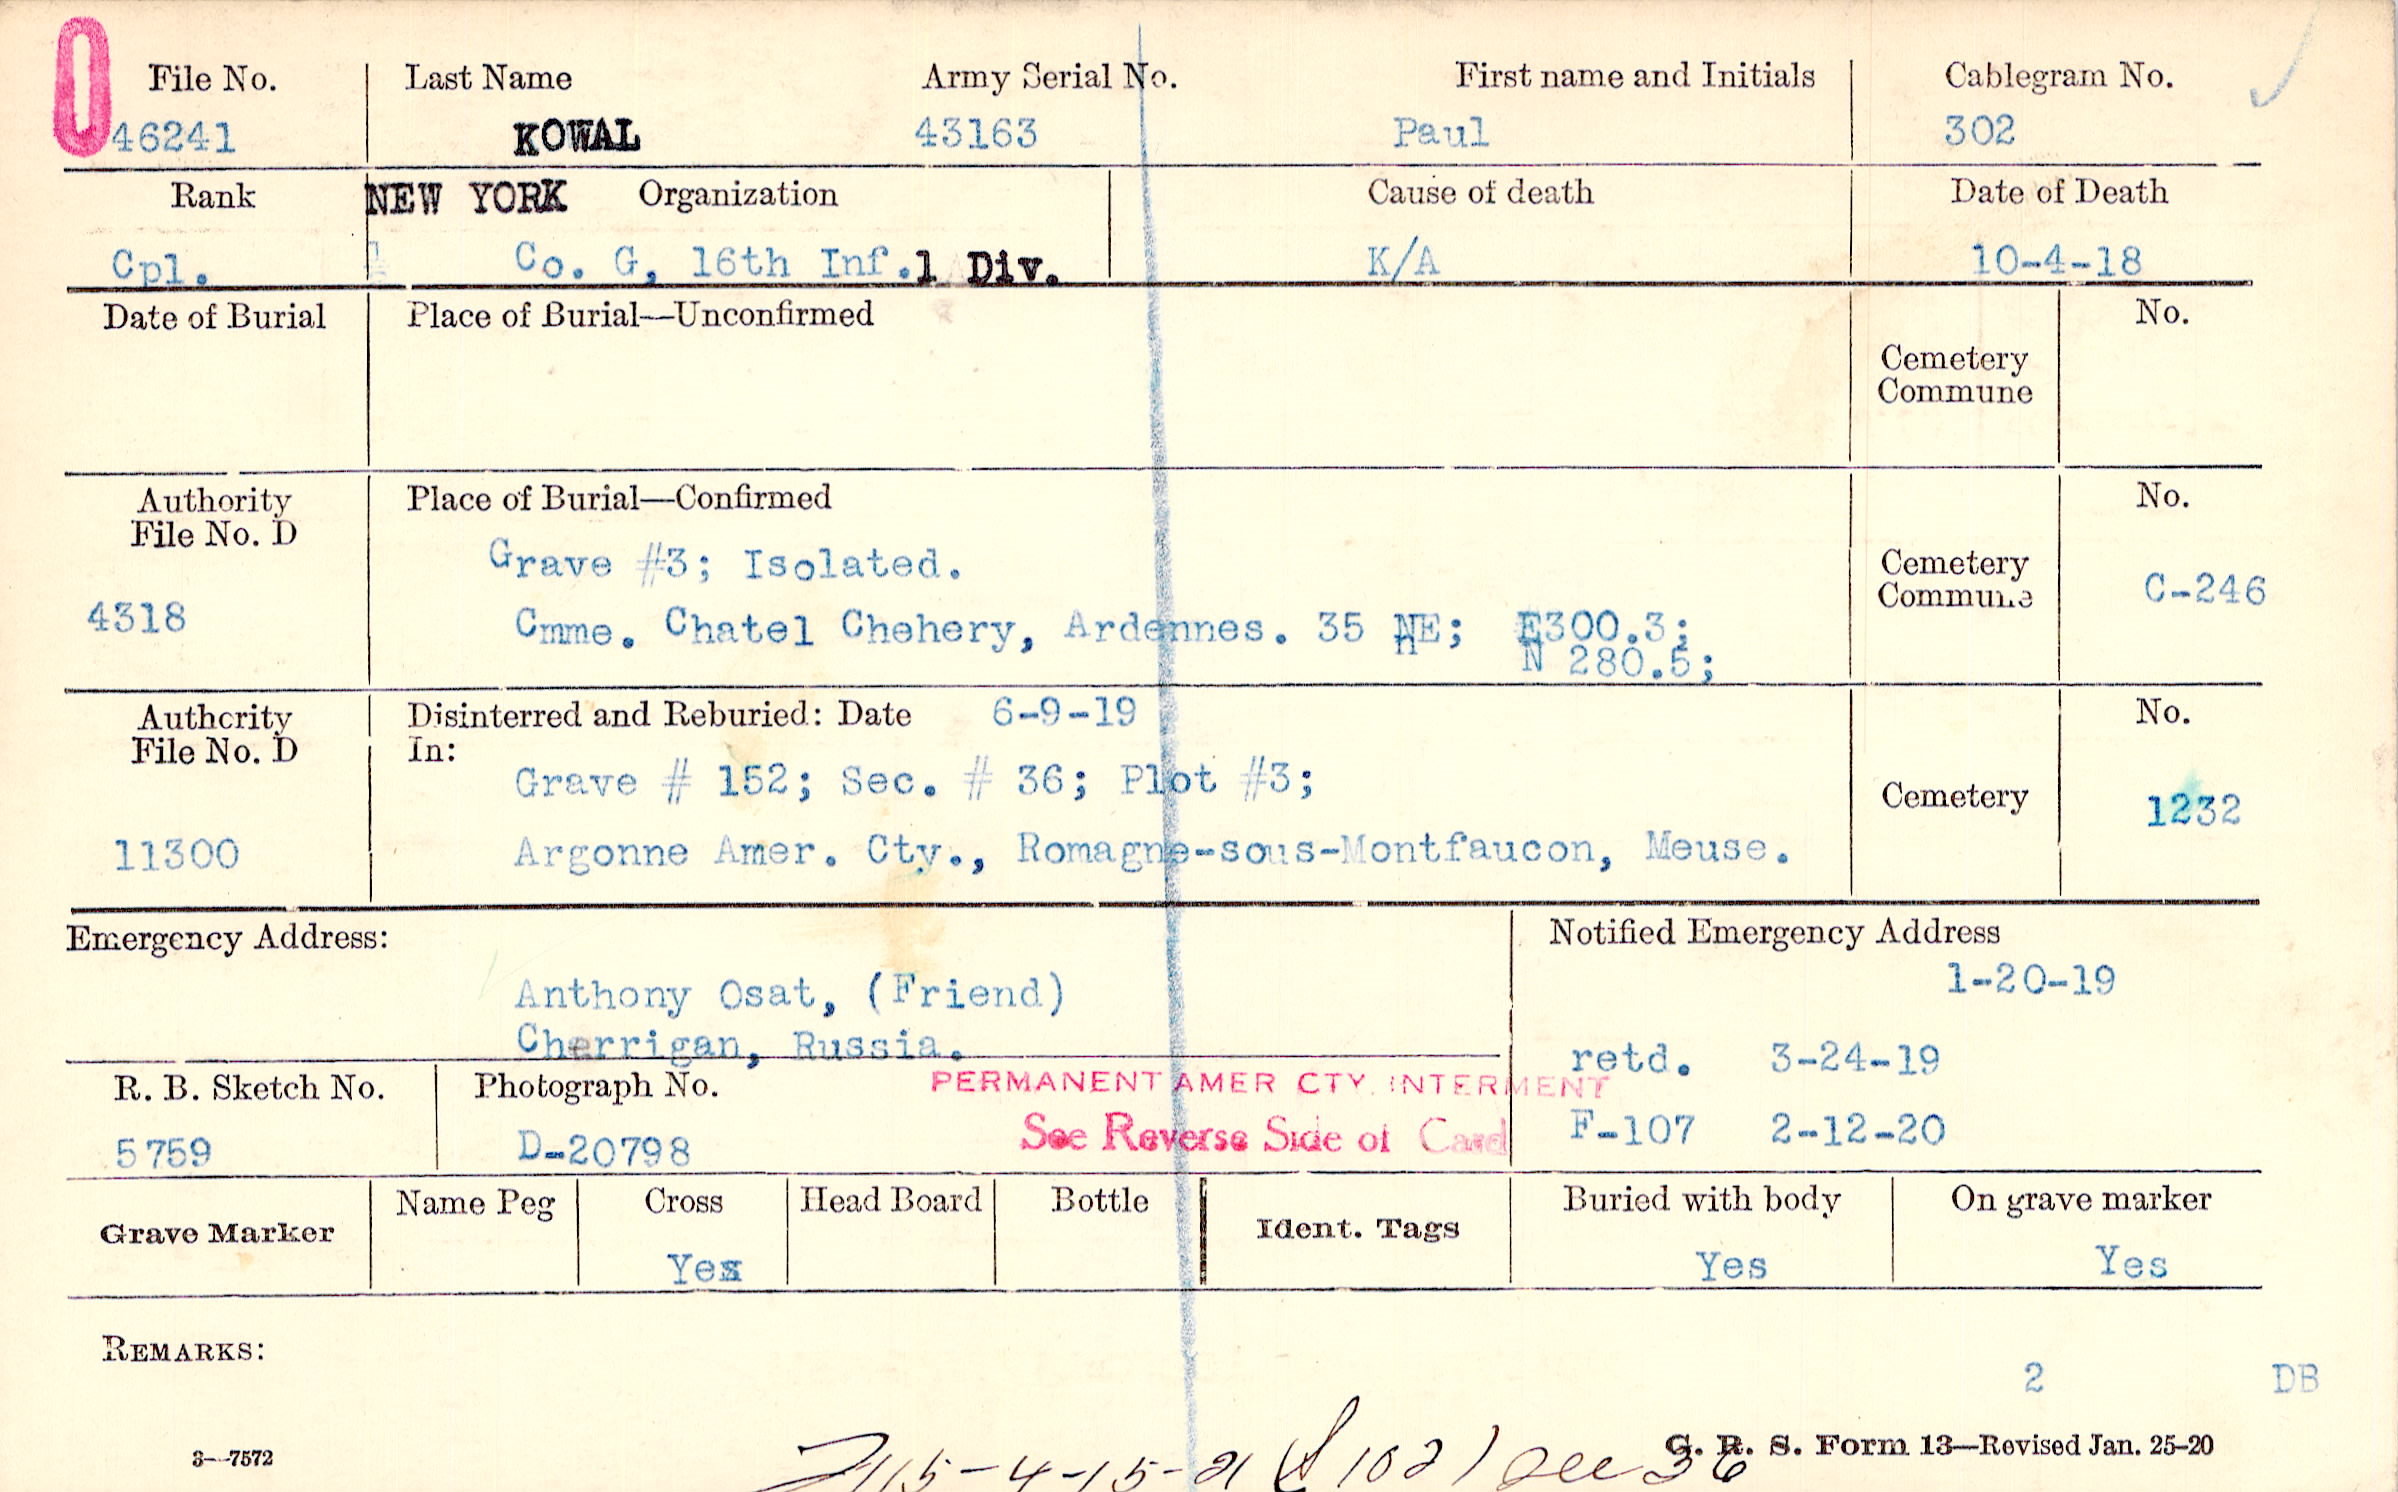 File No. Last Name Army Serial No. First name and Initials Cablegram No.
46241 KOWAL 43163 Paul 302
Rank NEW YORK Organization Cause of death Date of Death
Cpl. Co. G, 16th Inf. 1 Div. K/A 10-4-18
Date of Burial Place of Burial—Unconfirmed No.
Cemetery
Commune
Authority Place of Burial—Confirmed No.
File No. D
Grave #3; Isolated.
Cemetery
Commune C-246
4318 Cmme. Chatel Chehery, Ardennes. 35 NE; E300.3;
N 280.5;
Authority Disinterred and Reburied: Date 6-9-19 No.
File No. D In:
Grave # 152; Sec. # 36; Plot #3;
Cemetery 1232
11300 Argonne Amer. Cty., Romagne-sous-Montfaucon, Meuse.
Emergency Address: Notified Emergency Address
1-20-19
Anthony Osat, (Friend)
Cherrigan, Russia.
retd. 3-24-19
R. B. Sketch No. Photograph No. PERMANENT AMER CTY. INTERMENT
5759 D-20798 See Reverse Side of Card F-107 2-12-20
Grave Marker Name Peg Cross Head Board Bottle Ident. Tags Buried with body On grave marker
Yes Yes Yes
REMARKS:
2 DB
3—7572 G. R. S. Form 13—Revised Jan. 25-20